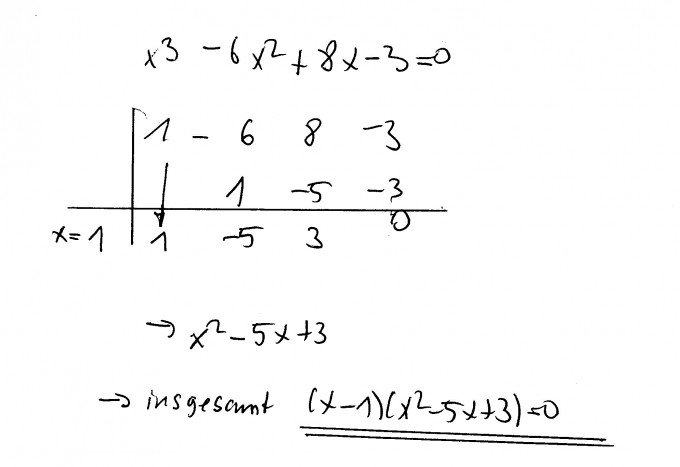 x3 - 6x² + 8x - 3 = 0
1 - 6 8 -3
1 -5 -3
x = 1 1 -5 3 0
→ x² - 5x + 3
→ insgesamt (x-1)(x²-5x+3)=0